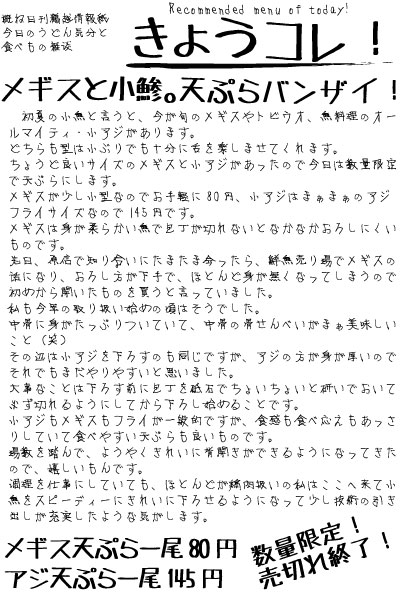 Recommended menu of today!
概ね日刊麺類情報紙
今日のうどん気分と
食べもの雑談
きょうコレ！
メギスと小鯵。天ぷらバンザイ！
初夏の小魚と言うと、今が旬のメギスやトビウオ、魚料理のオー
ルマイティ・小アジがあります。
どちらも型は小ぶりでも十分に舌を楽しませてくれます。
ちょうど良いサイズのメギスと小アジがあったので今日は数量限定
で天ぷらにします。
メギスが少し小型なのでお手軽に80円、小アジはまぁまぁのアジ
フライサイズなので145円です。
メギスは身が柔らかい魚で包丁が切れないとなかなかおろしにくい
ものです。
先日、魚店で知り合いにたまたま会ったら、鮮魚売り場でメギスの
話になり、おろし方が下手で、ほとんど身が無くなってしまうので
初めから開いたものを買うと言っていました。
私も今年の取り扱い始めの頃はそうでした。
中骨に身がたっぷりついていて、中骨の骨せんべいがまぁ美味しい
こと（笑）
その辺は小アジを下ろすのも同じですが、アジの方が身が厚いので
それでもまだやりやすいと思いました。
大事なことは下ろす前に包丁を砥石でちょいちょいと研いでおいて
必ず切れるようにしてから下ろし始めることです。
小アジもメギスもフライが一般的ですが、食感も食べ応えもあっさ
りしていて食べやすい天ぷらも良いものです。
場数を踏んで、ようやくきれいに背開きができるようになってきた
ので、嬉しいもんです。
調理を仕事にしていても、ほとんどが精肉扱いの私はここへ来て小
魚をスピーディーにきれいに下ろせるようになって少し技術の引き
出しが充実したような気がします。
メギス天ぷら一尾80円
アジ天ぷら一尾145円
数量限定！
売切れ終了！